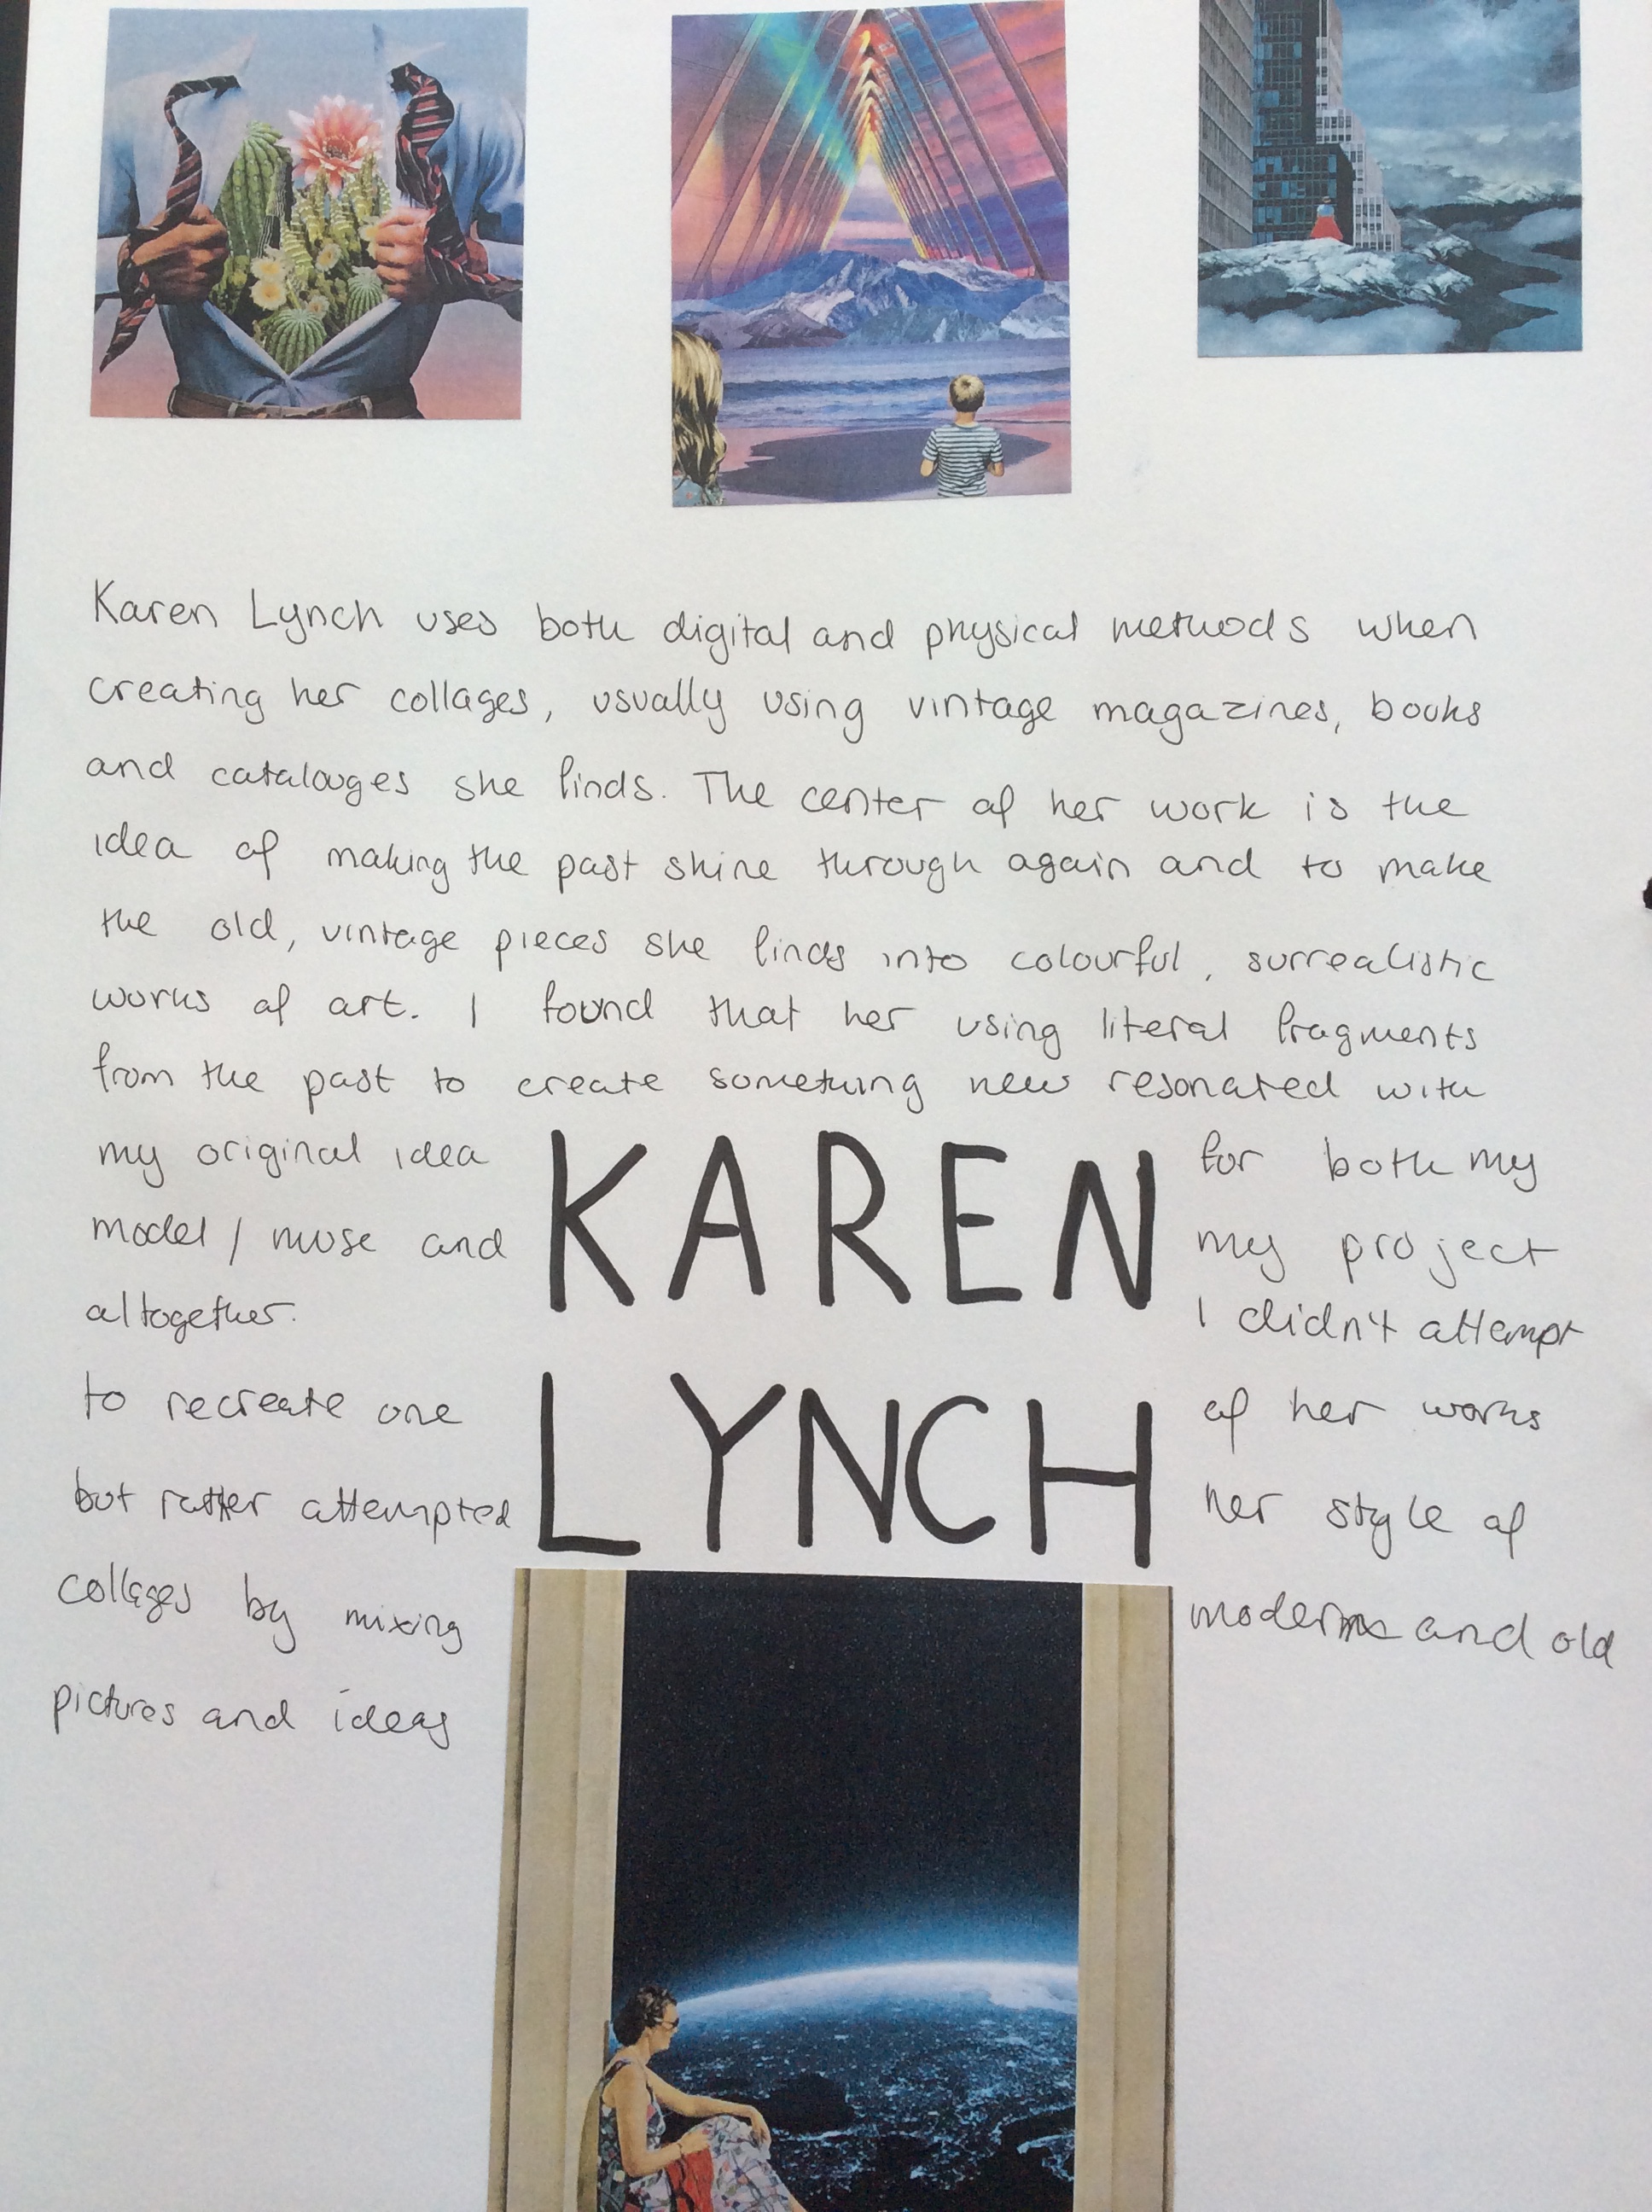 Karen Lynch uses both digital and physical methods when
creating her collages, usually using vintage magazines, books
and catalouges she finds. The center of her work is the
idea of making the past shine through again and to make
the old, vintage pieces she finds into colourful, surrealistic
works of art. I found that her using literal fragments
from the past to create something new resonated with
my original idea for both my
model / muse and my project
altogether. I didn't attempt
to recreate one of her works
but rather attempted her style of
collages by mixing modern and old
pictures and ideas
KAREN
LYNCH